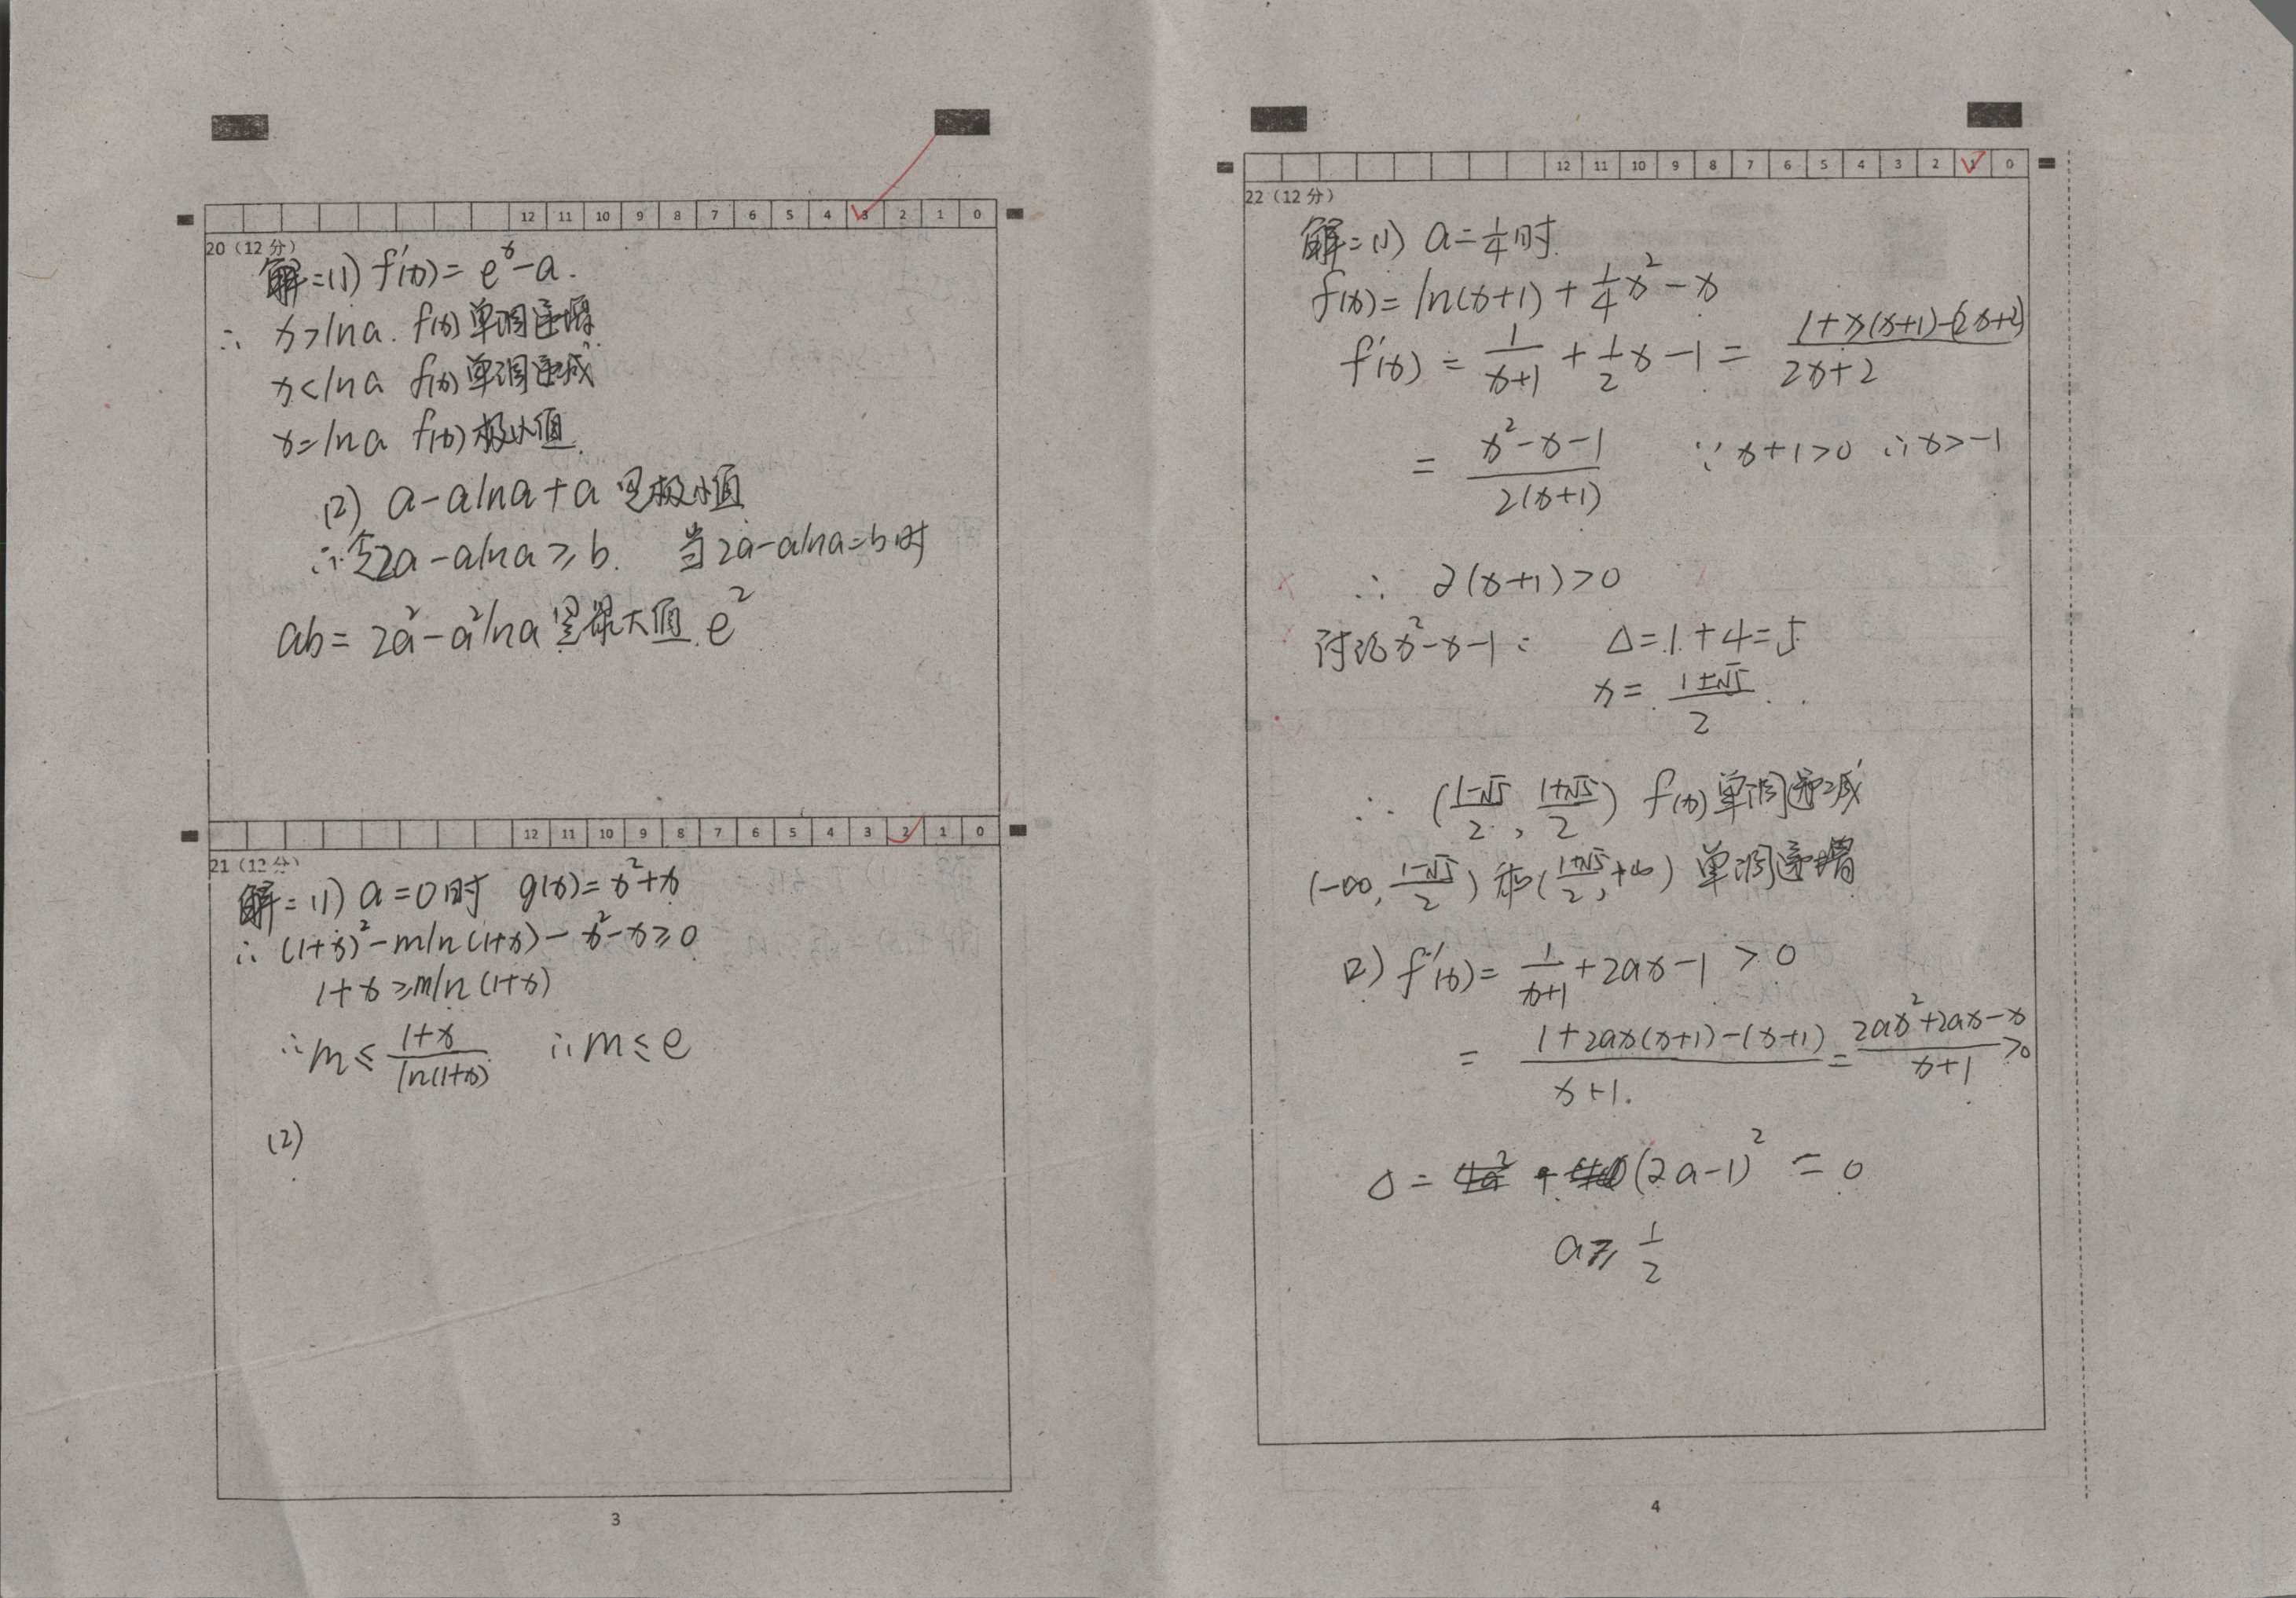 12 11 10 9 8 7 6 5 4 3 2 1 0
20（12 分）
解:(1) f'(x)= eˣ-a.
∴ x>lna. f(x)单调递增.
x<lna f(x)单调递减
x=lna f(x)极小值.
(2) a-alna+a 是极小值
∴ 2a-alna≥b. 当2a-alna=b时
ab= 2a²-a²lna 是最大值 e²
12 11 10 9 8 7 6 5 4 3 2 1 0
21（12 分）
解:(1) a=0时 g(x)= x²+x
∴ (1+x)²-mln(1+x)-x²-x≥0
1+x≥mln(1+x)
∴m≤ (1+x)/ln(1+x) ∴m≤e
(2)
3
12 11 10 9 8 7 6 5 4 3 2 1 0
22（12 分）
解:(1) a=1/4时.
f(x)= ln(x+1)+1/4x²-x
f'(x) = 1/(x+1) + 1/2x-1 = (1+x(x+1)-(2x+2))/(2x+2)
= (x²-x-1)/(2(x+1)) ∵x+1>0 ∴x>-1
∴ 2(x+1)>0
讨论x²-x-1: Δ=1+4=5
x= (1±√5)/2
∴ ((1-√5)/2, (1+√5)/2) f(x)单调递减
(-∞, (1-√5)/2) 和((1+√5)/2, +∞) 单调递增
(2) f'(x)= 1/(x+1)+2ax-1 >0
= (1+2ax(x+1)-(x+1))/(x+1) = (2ax²+2ax-x)/(x+1) >0
Δ= (2a-1)² = 0
a≥ 1/2
4